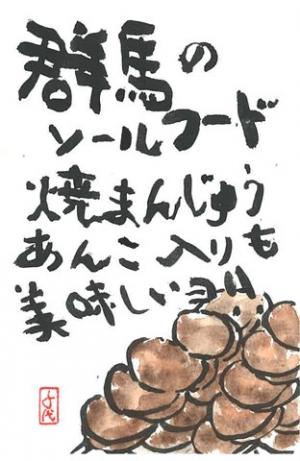 群馬の
ソールフード
焼まんじゅう
あんこ入りも
美味しいヨ!!
千代